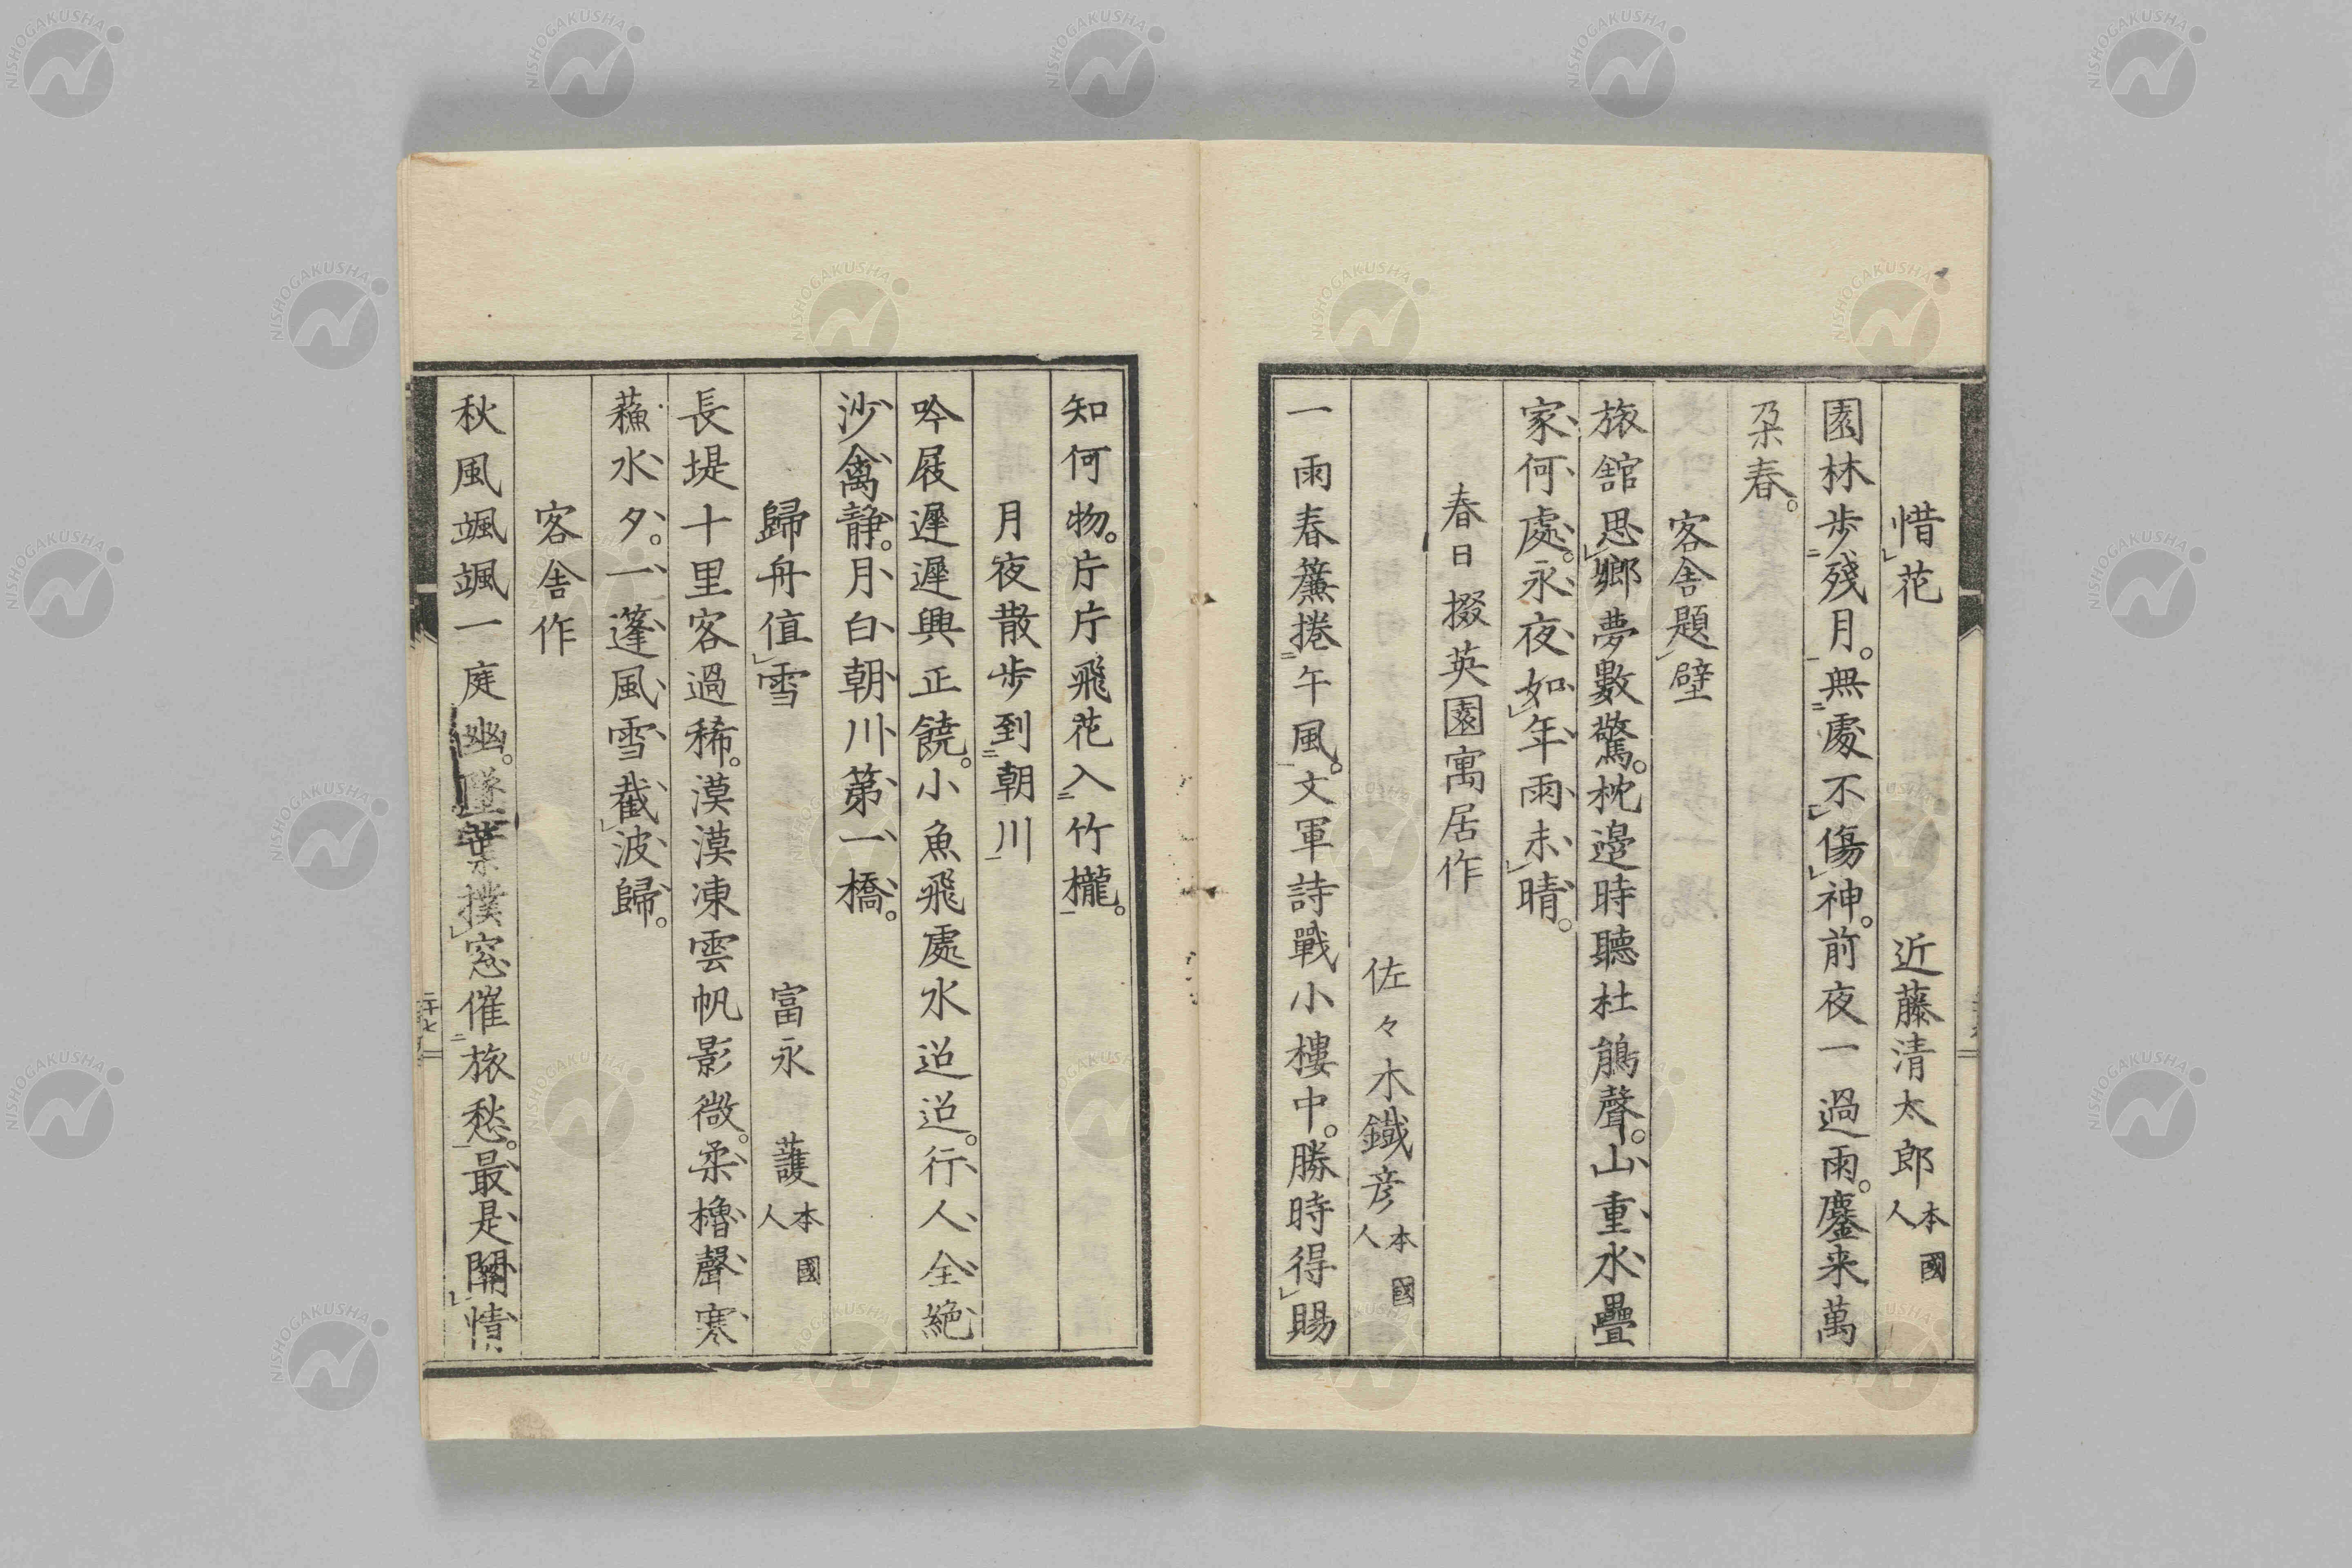 惜花　近藤清太郎 本國人
園林歩殘月。無處不傷神。前夜一過雨。鏖来萬
朶春。
客舎題壁
旅舘思鄉夢數驚。枕邊時聽杜鵑聲。山重水疊
家何處。永夜如年雨未晴。
春日掇英園寓居作
佐々木鐵彦 本國人
一雨春簾捲午風。文軍詩戰小樓中。勝時得賜
知何物。片片飛花入竹櫳。
月夜散歩到朝川
吟屐遲遲興正饒。小魚飛處水迢迢。行人全絶
沙禽静。月白朝川第一橋。
歸舟値雪　富永護 本國人
長堤十里客過稀。漠漠凍雲帆影微。柔櫓聲寒
蘓水夕。一蓬風雪截波歸。
客舎作
秋風颯颯一庭幽。墜葉撲窓催旅愁。最是關情
二十七
NISHOGAKUSHA